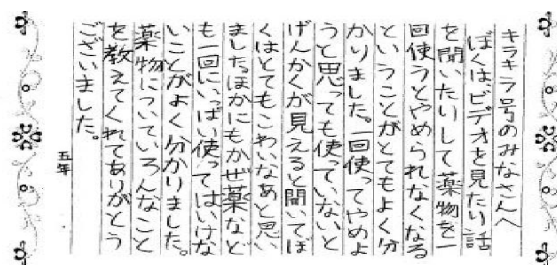 キラキラ号のみなさんへ
ぼくはビデオを見たり話
を聞いたりして薬物を一
回使うとやめられなくなる
ということがとてもよく分
かりました。一回使ってやめよ
うと思っても使っていないと
げんかくが見えると聞いてぼ
くはとてもこわいなあと思い
ましたほかにもかぜ薬など
も一回にいっぱい使ってはいけな
いことがよく分かりました。
薬物についていろんなこと
を教えてくれてありがとう
ございました。
五年